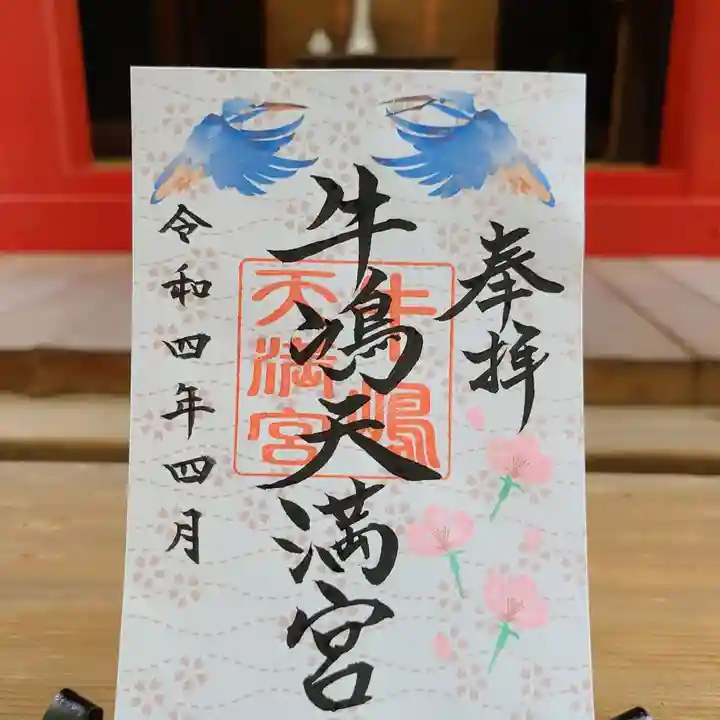 奉拝
牛嶋天満宮
牛嶋
天満宮
令和四年四月